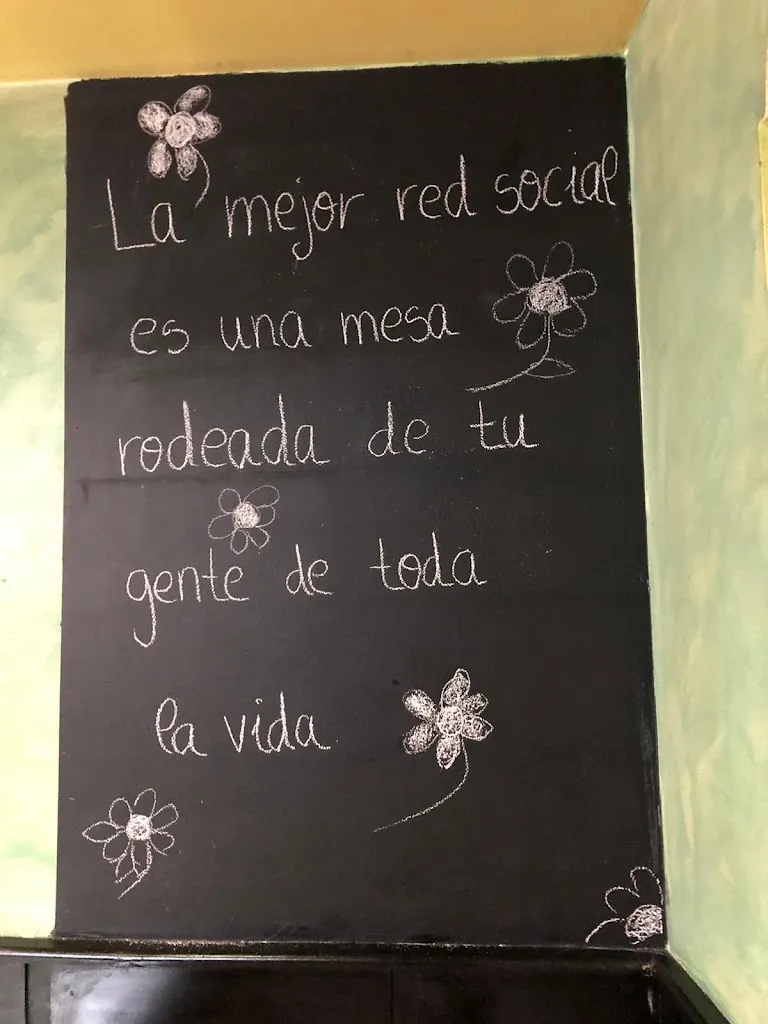 La mejor red social
es una mesa
rodeada de tu
gente de toda
la vida